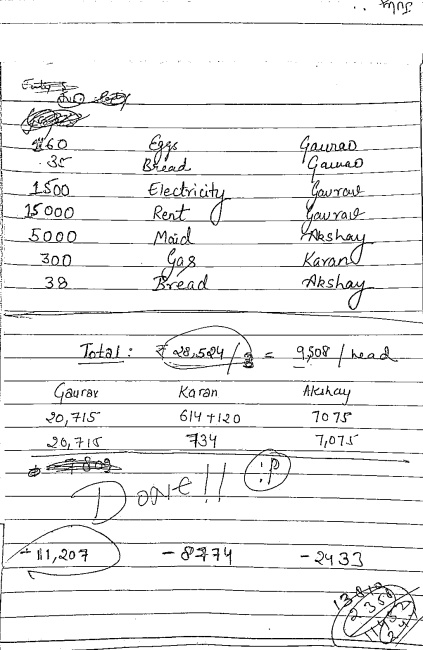 160 Eggs Gaurav
35 Bread Gaurav
1500 Electricity Gaurav
15000 Rent Gaurav
5000 Maid Akshay
300 Gas Karan
38 Bread Akshay
Total: ₹ 28,524/3 = 9,508 / head
Gaurav Karan Akshay
20,715 614+120 7075
20,715 734 7,075
Done!! :P
+11,207 -8774 -2433